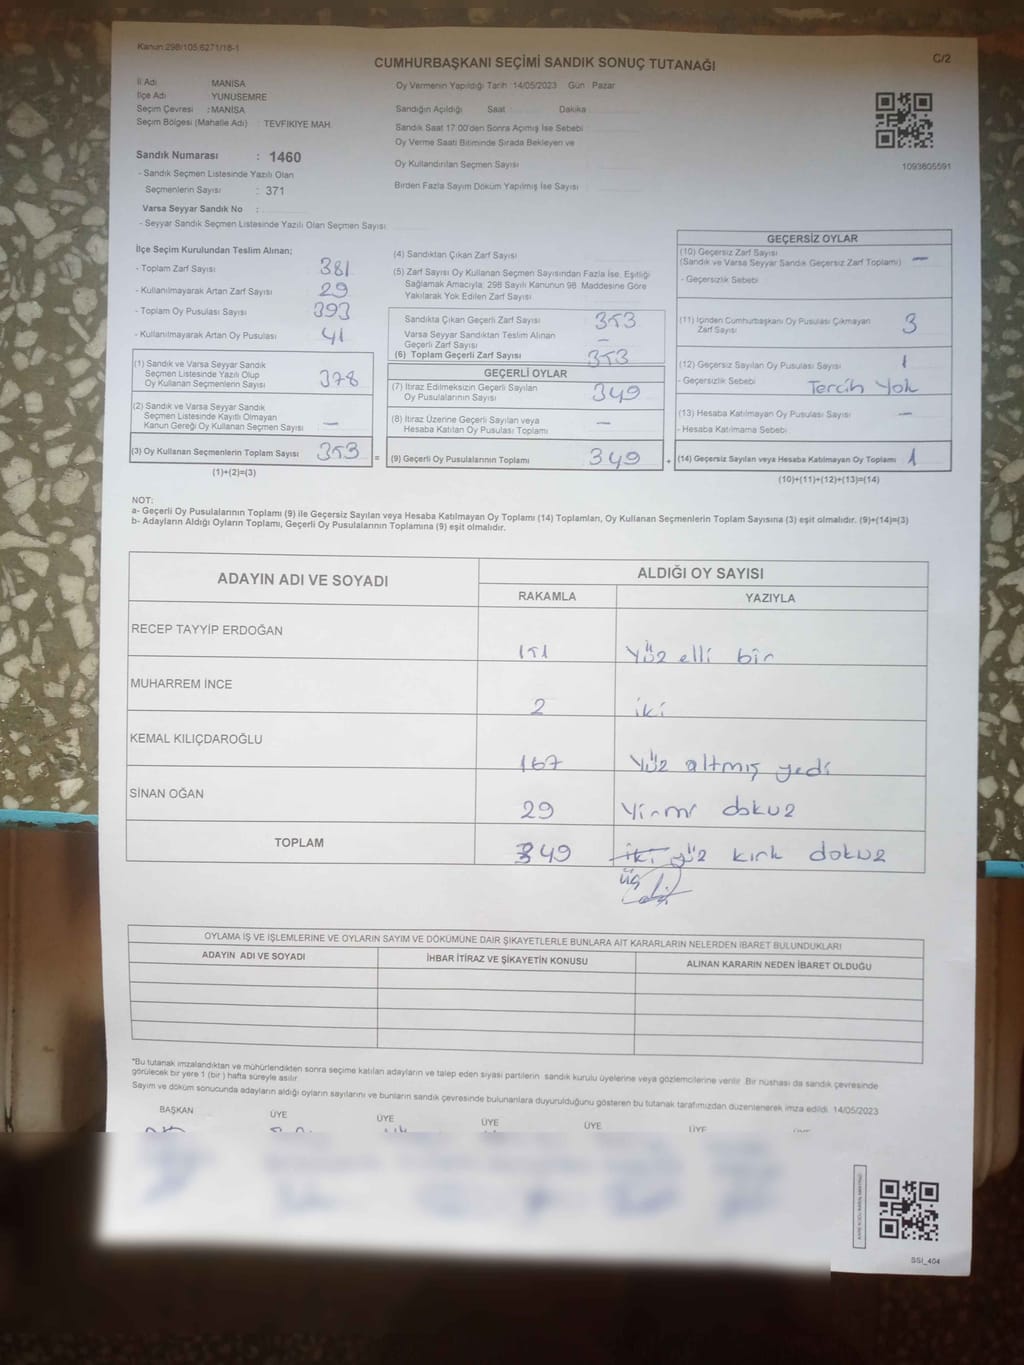 Kanun:298/105,6271/18-1
CUMHURBAŞKANI SEÇİMİ SANDIK SONUÇ TUTANAĞI
C/2
İl Adı MANİSA
İlçe Adı YUNUSEMRE
Seçim Çevresi : MANİSA
Seçim Bölgesi (Mahalle Adı) : TEVFIKIYE MAH.
Oy Vermenin Yapıldığı Tarih :14/05/2023 Gün : Pazar
Sandığın Açıldığı Saat Dakika
Sandık Saat 17:00'den Sonra Açılmış İse Sebebi
Oy Verme Saati Bitiminde Sırada Bekleyen ve
Oy Kullandırılan Seçmen Sayısı
Birden Fazla Sayım Döküm Yapılmış İse Sayısı
1093605591
Sandık Numarası : 1460
- Sandık Seçmen Listesinde Yazılı Olan
Seçmenlerin Sayısı : 371
Varsa Seyyar Sandık No :
- Seyyar Sandık Seçmen Listesinde Yazılı Olan Seçmen Sayısı
İlçe Seçim Kurulundan Teslim Alınan;
- Toplam Zarf Sayısı 381
- Kullanılmayarak Artan Zarf Sayısı 29
- Toplam Oy Pusulası Sayısı 393
- Kullanılmayarak Artan Oy Pusulası 41
(1) Sandık ve Varsa Seyyar Sandık
Seçmen Listesinde Yazılı Olup
Oy Kullanan Seçmenlerin Sayısı 378
(2) Sandık ve Varsa Seyyar Sandık
Seçmen Listesinde Kayıtlı Olmayan
Kanun Gereği Oy Kullanan Seçmen Sayısı —
(3) Oy Kullanan Seçmenlerin Toplam Sayısı 353 =
(1)+(2)=(3)
(4) Sandıktan Çıkan Zarf Sayısı
(5) Zarf Sayısı Oy Kullanan Seçmen Sayısından Fazla İse, Eşitliği
Sağlamak Amacıyla; 298 Sayılı Kanunun 98. Maddesine Göre
Yakılarak Yok Edilen Zarf Sayısı
Sandıkta Çıkan Geçerli Zarf Sayısı 353
Varsa Seyyar Sandıktan Teslim Alınan
Geçerli Zarf Sayısı —
(6) Toplam Geçerli Zarf Sayısı 353
GEÇERLİ OYLAR
(7) İtiraz Edilmeksizin Geçerli Sayılan
Oy Pusulalarının Sayısı 349
(8) İtiraz Üzerine Geçerli Sayılan veya
Hesaba Katılan Oy Pusulası Toplamı —
(9) Geçerli Oy Pusulalarının Toplamı 349 +
GEÇERSİZ OYLAR
(10) Geçersiz Zarf Sayısı
(Sandık ve Varsa Seyyar Sandık Geçersiz Zarf Toplamı) —
- Geçersizlik Sebebi
(11) İçinden Cumhurbaşkanı Oy Pusulası Çıkmayan
Zarf Sayısı 3
(12) Geçersiz Sayılan Oy Pusulası Sayısı 1
- Geçersizlik Sebebi Tercih Yok
(13) Hesaba Katılmayan Oy Pusulası Sayısı —
- Hesaba Katılmama Sebebi
(14) Geçersiz Sayılan veya Hesaba Katılmayan Oy Toplamı 1
(10)+(11)+(12)+(13)=(14)
NOT:
a- Geçerli Oy Pusulalarının Toplamı (9) ile Geçersiz Sayılan veya Hesaba Katılmayan Oy Toplamı (14) Toplamları, Oy Kullanan Seçmenlerin Toplam Sayısına (3) eşit olmalıdır. (9)+(14)=(3)
b- Adayların Aldığı Oyların Toplamı, Geçerli Oy Pusulalarının Toplamına (9) eşit olmalıdır.
ADAYIN ADI VE SOYADI
ALDIĞI OY SAYISI
RAKAMLA YAZIYLA
RECEP TAYYİP ERDOĞAN 151 Yüz elli bir
MUHARREM İNCE 2 iki
KEMAL KILIÇDAROĞLU 167 Yüz altmış yedi
SİNAN OĞAN 29 Yirmi dokuz
TOPLAM 349 iki yüz kırk dokuz
üç
OYLAMA İŞ VE İŞLEMLERİNE VE OYLARIN SAYIM VE DÖKÜMÜNE DAİR ŞİKAYETLERLE BUNLARA AİT KARARLARIN NELERDEN İBARET BULUNDUKLARI
ADAYIN ADI VE SOYADI İHBAR İTİRAZ VE ŞİKAYETİN KONUSU ALINAN KARARIN NEDEN İBARET OLDUĞU
*Bu tutanak imzalandıktan ve mühürlendikten sonra seçime katılan adayların ve talep eden siyasi partilerin sandık kurulu üyelerine veya gözlemcilerine verilir. Bir nüshası da sandık çevresinde
görülecek bir yere 1 (bir ) hafta süreyle asılır.
Sayım ve döküm sonucunda adayların aldığı oyların sayılarını ve bunların sandık çevresinde bulunanlara duyurulduğunu gösteren bu tutanak tarafımızdan düzenlenerek imza edildi. 14/05/2023
BAŞKAN ÜYE ÜYE ÜYE ÜYE ÜYE
SSI_404